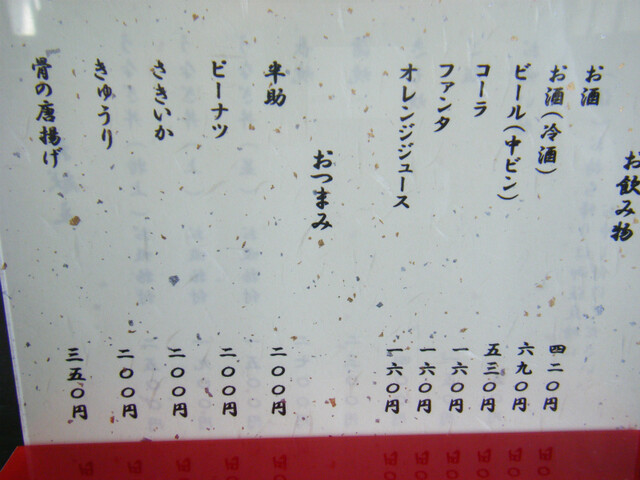 お飲み物
お酒 四二〇円
お酒(冷酒) 六九〇円
ビール(中ビン) 五三〇円
コーラ 一六〇円
ファンタ 一六〇円
オレンジジュース 一六〇円
おつまみ
半助 二〇〇円
ピーナツ 二〇〇円
さきいか 二〇〇円
きゅうり 二〇〇円
骨の唐揚げ 三五〇円